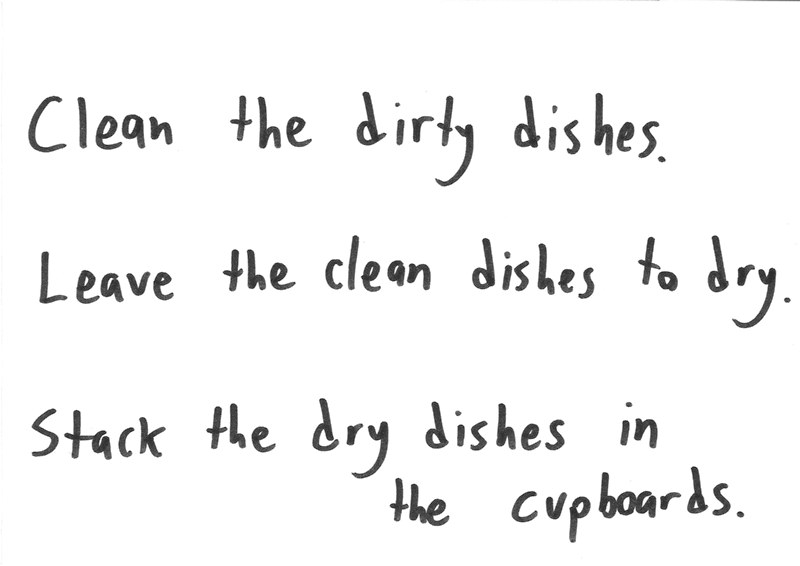 Clean the dirty dishes.
Leave the clean dishes to dry.
Stack the dry dishes in
the cupboards.